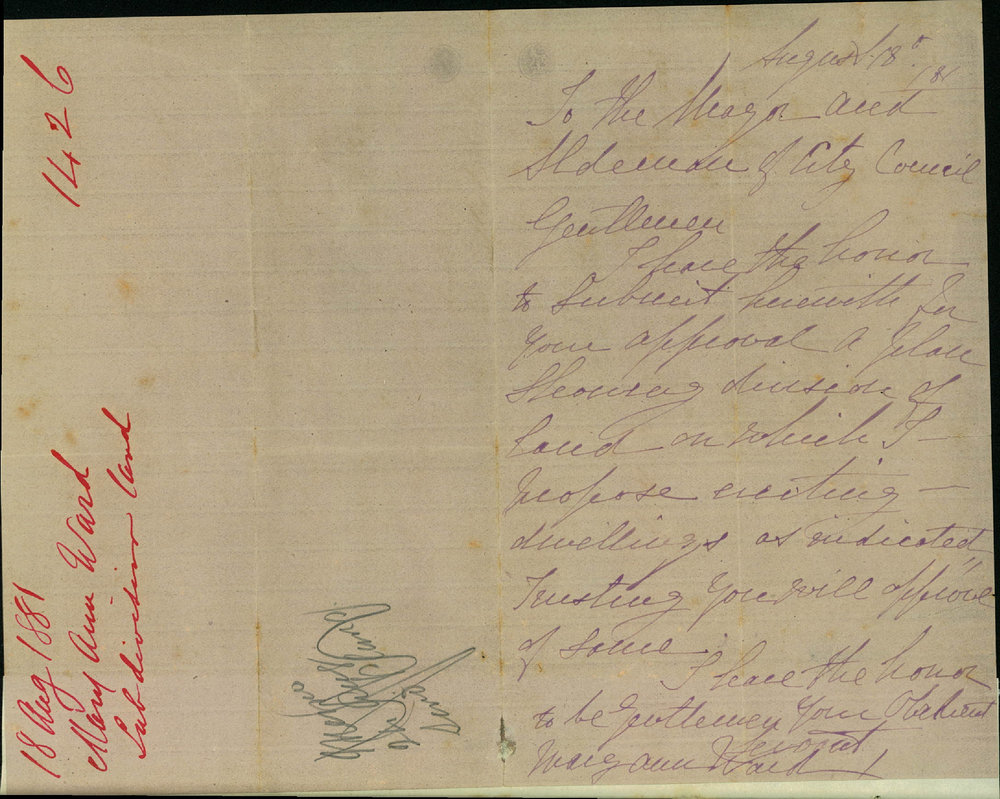 August 18th
/81
To the Mayor and
Aldermen of City Council
Gentlemen
I have the honor
to Submit herewith for
Your approval A Plan
Showing division of
Land on which I
propose erecting —
dwellings as indicated
Trusting You will approve
of Same
I have the honor
to be Gentlemen Your Obedient
Servant
Mary Ann Ward
1426
18 Aug 1881
Mary Ann Ward
Subdivision land